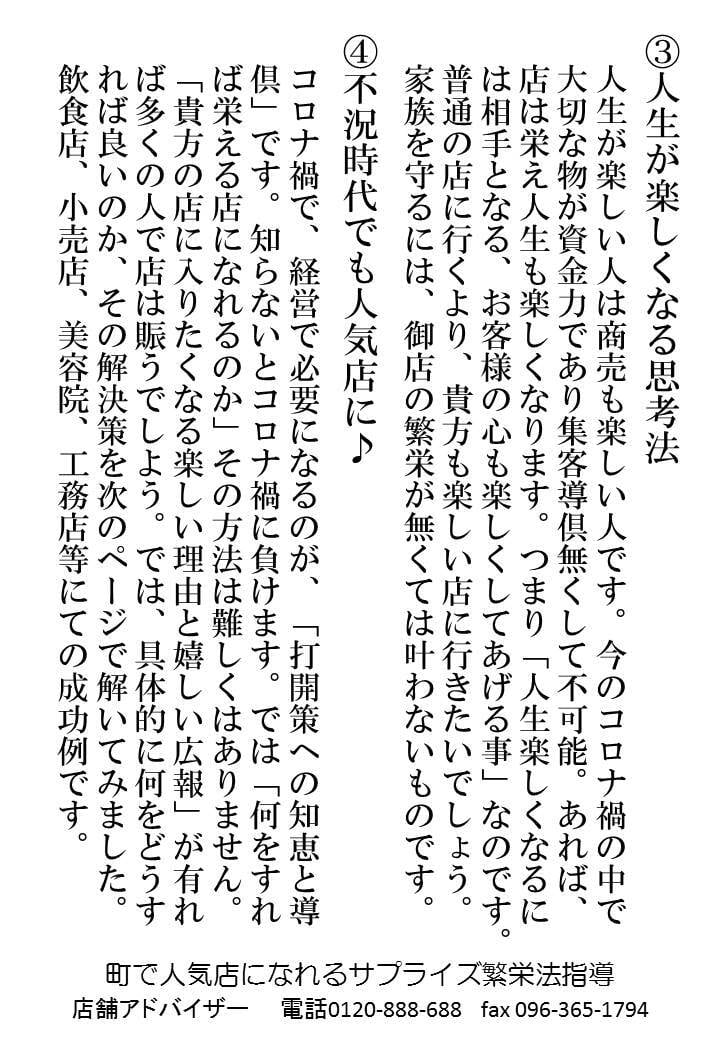 ③人生が楽しくなる思考法
人生が楽しい人は商売も楽しい人です。今のコロナ禍の中で
大切な物が資金力であり集客導倶無くして不可能。あれば、
店は栄え人生も楽しくなります。つまり「人生楽しくなるに
は相手となる、お客様の心も楽しくしてあげる事」なのです。
普通の店に行くより、貴方も楽しい店に行きたいでしょう。
家族を守るには、御店の繁栄が無くては叶わないものです。
④不況時代でも人気店に♪
コロナ禍で、経営で必要になるのが、「打開策への知恵と導
倶」です。知らないとコロナ禍に負けます。では「何をすれ
ば栄える店になれるのか」その方法は難しくはありません。
「貴方の店に入りたくなる楽しい理由と嬉しい広報」が有れ
ば多くの人で店は賑うでしよう。では、具体的に何をどうす
れば良いのか、その解決策を次のページで解いてみました。
飲食店、小売店、美容院、工務店等にての成功例です。
町で人気店になれるサプライズ繁栄法指導
店舗アドバイザー 電話0120-888-688 fax 096-365-1794